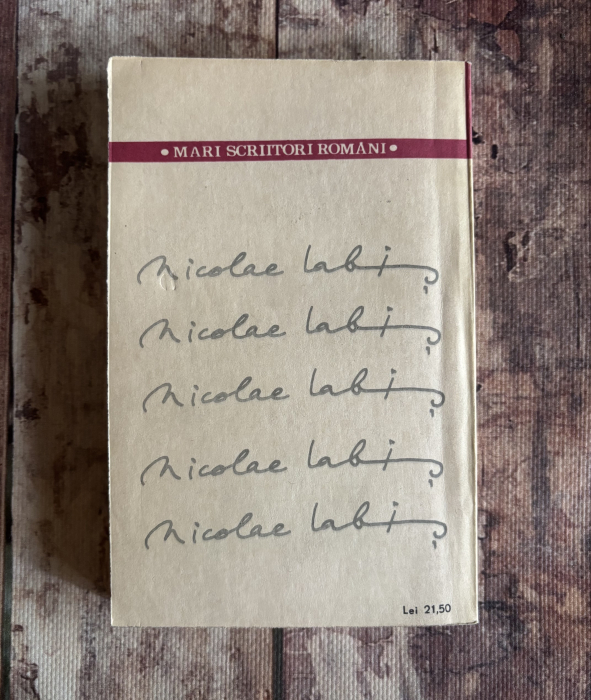 • MARI SCRIITORI ROMÂNI •
Nicolae Labiș
Nicolae Labiș
Nicolae Labiș
Nicolae Labiș
Nicolae Labiș
Lei 21,50